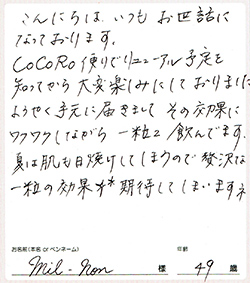 こんにちは、いつもお世話に
なっております。
CoCoRo便りでリニューアル予定を
知ってから大変楽しみにしておりました
ようやく手元に届きまして その効果に
ワクワクしながら一粒2 飲んでます。
夏は肌も日焼けしてしまうので贅沢な
一粒の効果 期待してしまいますネ
お名前(本名 or ペンネーム)
年齢
Mil-Non 様 49 歳